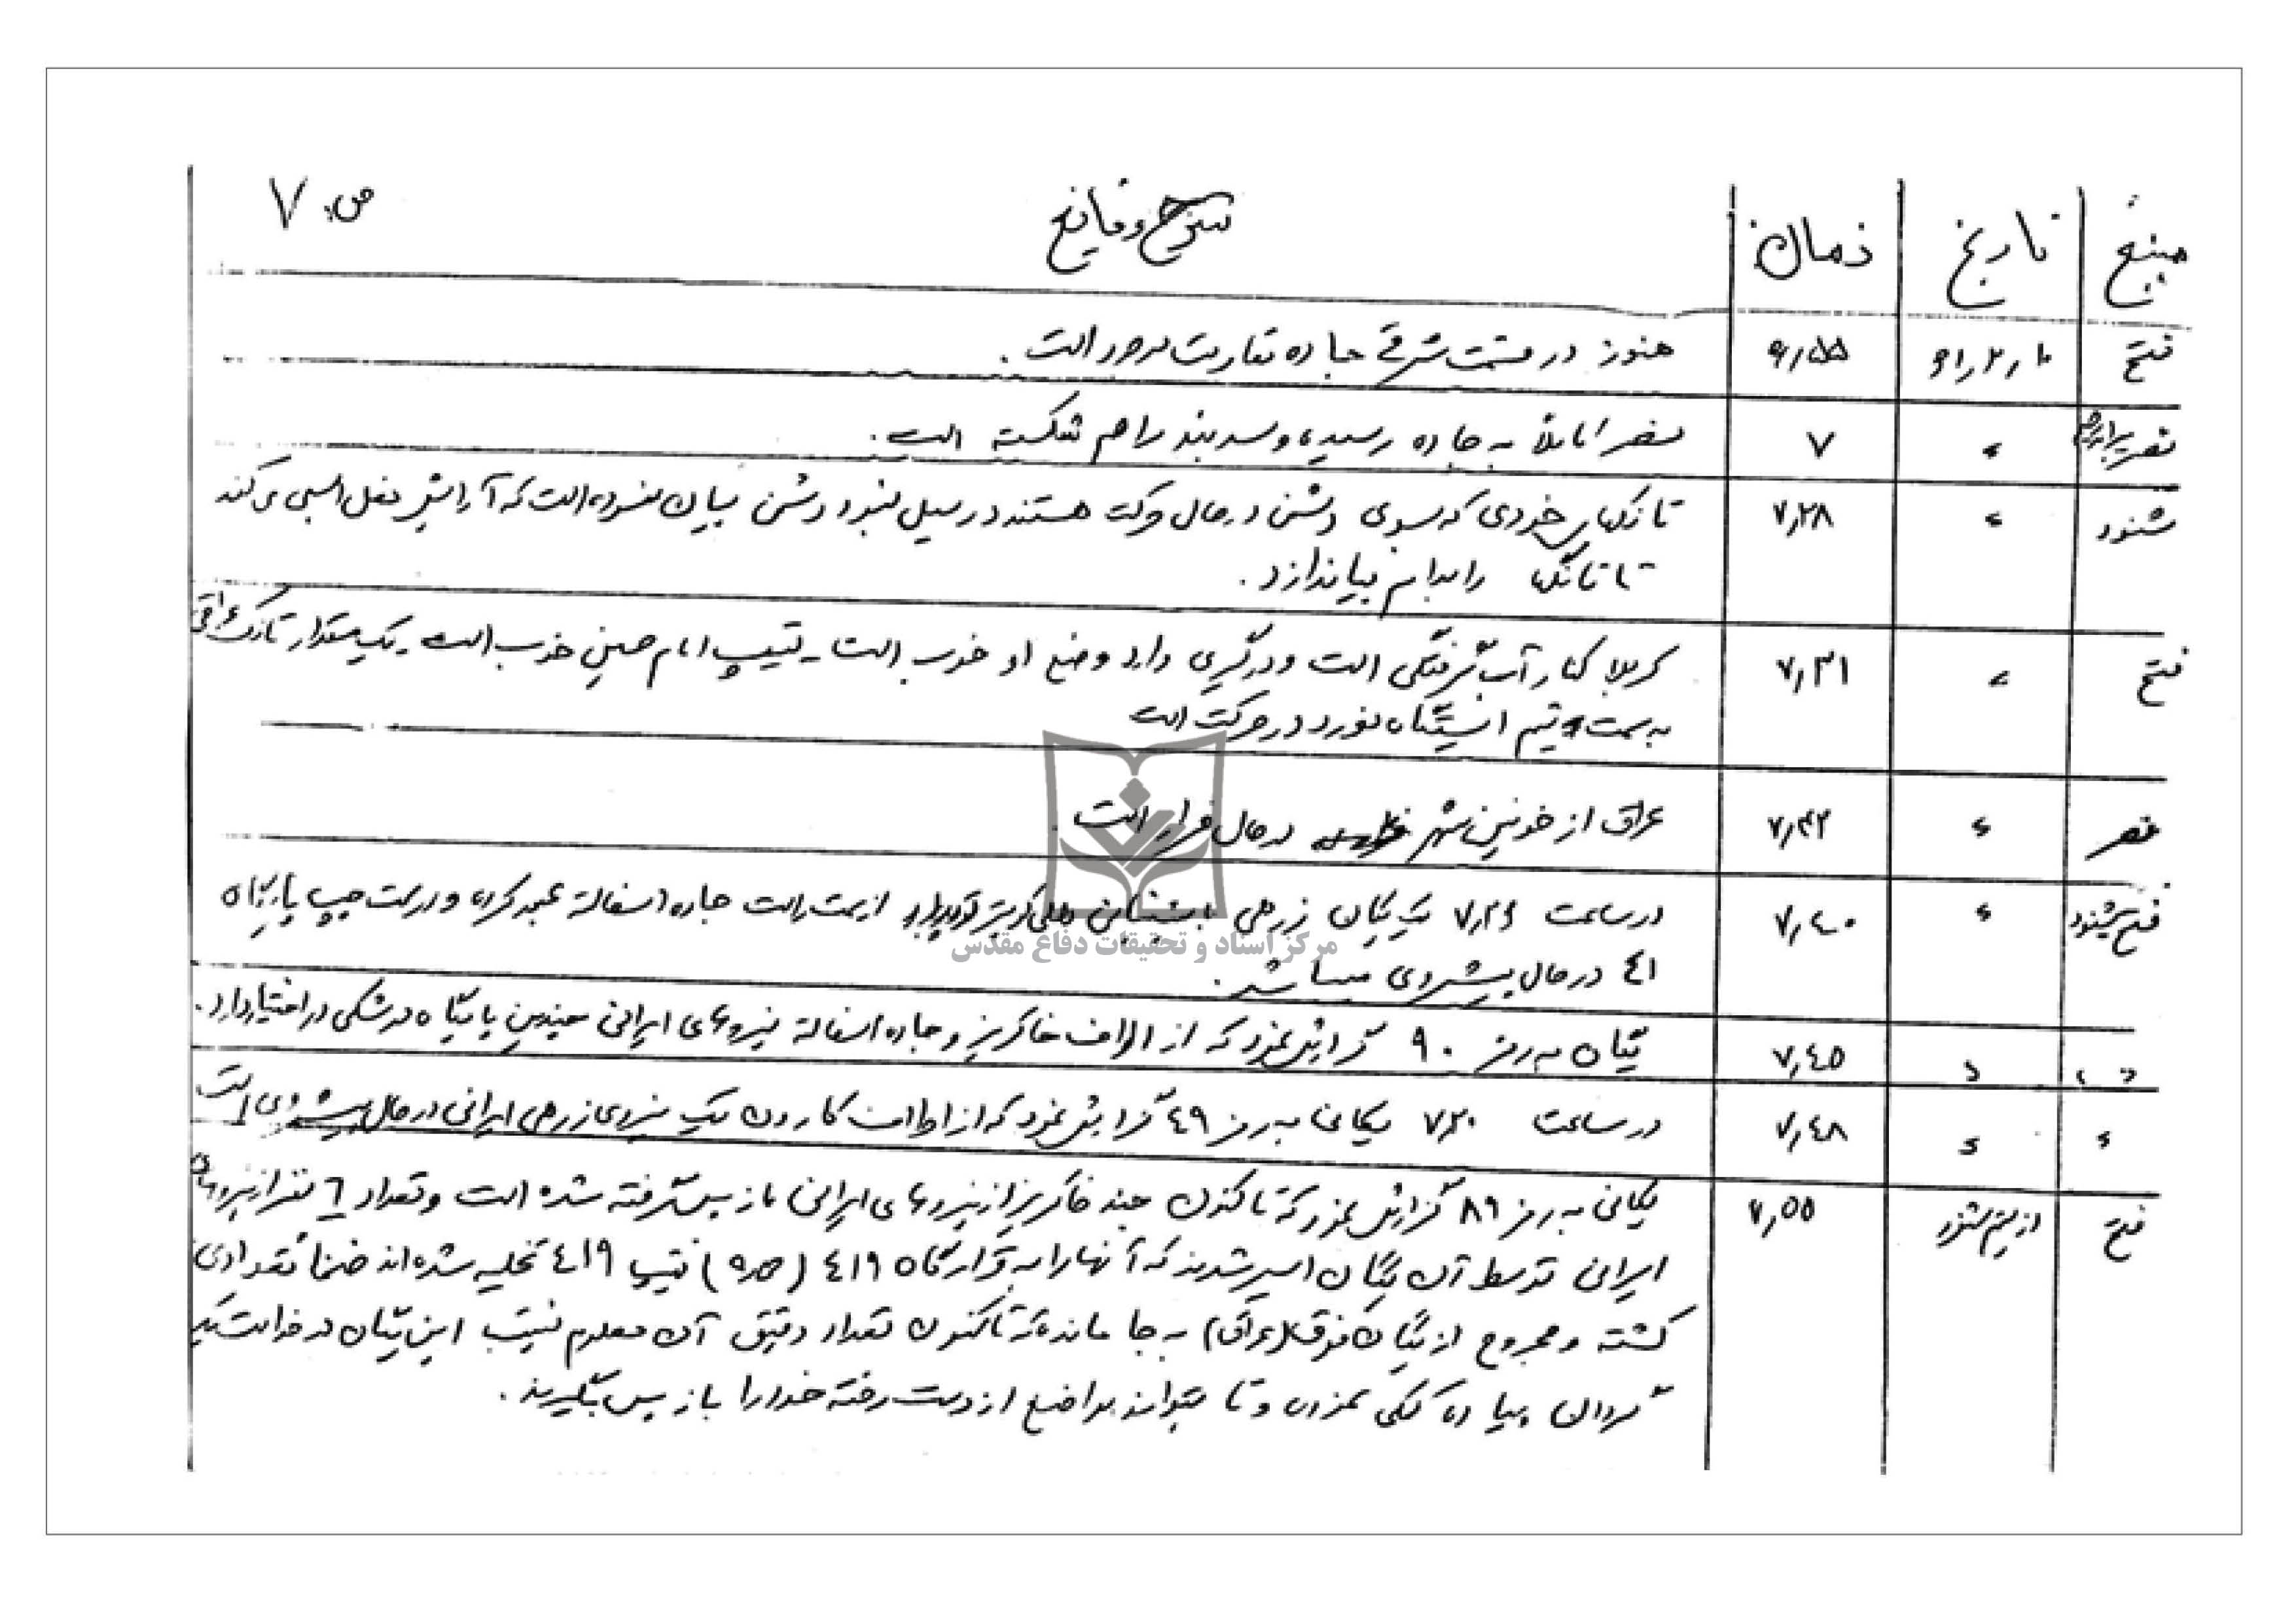 منبع تاریخ زمان شرح وقایع ص ۷
فتح ۶۱٫۲٫۲۰ ۶٫۵۵ هنوز در قسمت شرقی جاده مقاومت موجود است.
۷ نصر احتمالاً به جاده رسیده و سد بند را هم شکسته است.
شنود ۷٫۲۸ تانکهای خودی که بسوی دشمن در حال حرکت هستند در سیل نبرد دشمن بیان نموده است که آرایش نعل اسبی می کند
تا تانکها را بدام بیاندازد.
فتح ۷٫۳۱ کربلا کنار آب گرفتگی است و درگیری دارد وضع او خوب است - تیپ امام حسین خوب است - یک مقدار تانک عراقی
به سمت ایستگاه نورد در حرکت است
نصر ۷٫۳۲ عراق از خونین شهر در حال فرار است.
فتح شنود ۷٫۴۰ در ساعت ۷٫۲۶ یک یگان زرهی با پشتیبانی هلی کوپتر از سمت راست جاده اسفالته عبور کرده و در سمت چپ پایگاه
۴۱ در حال پیشروی میباشد.
۷٫۴۵ یگان به رمز ۹۰ گزارش نمود که از اطراف خاکریز و جاده اسفالته نیروهای ایرانی چندین پایگاه موشکی در اختیار دارد.
۷٫۴۸ در ساعت ۷٫۲۰ یگانی به رمز ۴۹ گزارش نمود که از اطراف کارون یک نیروی زرهی ایرانی در حال پیشروی است
فتح ۷٫۵۵ یگانی به رمز ۸۹ گزارش نمود که تاکنون چند خاکریز از نیروهای ایرانی باز پس گرفته شده است و تعداد ۶ نفر از نیروهای
ایرانی توسط آن یگان اسیر شدند که آنها را به قرارگاه ۴۱۹ تیپ ۴۱۹ تخلیه شده اند ضمناً تعدادی
کشته و مجروح از یگان فوق (عراق) به جا مانده که تاکنون تعداد دقیق آن معلوم نیست این یگان درخواست یک
گردان پیاده کمکی نموده و تا بتواند مواضع از دست رفته خود را باز پس بگیرند.
مرکز اسناد و تحقیقات دفاع مقدس